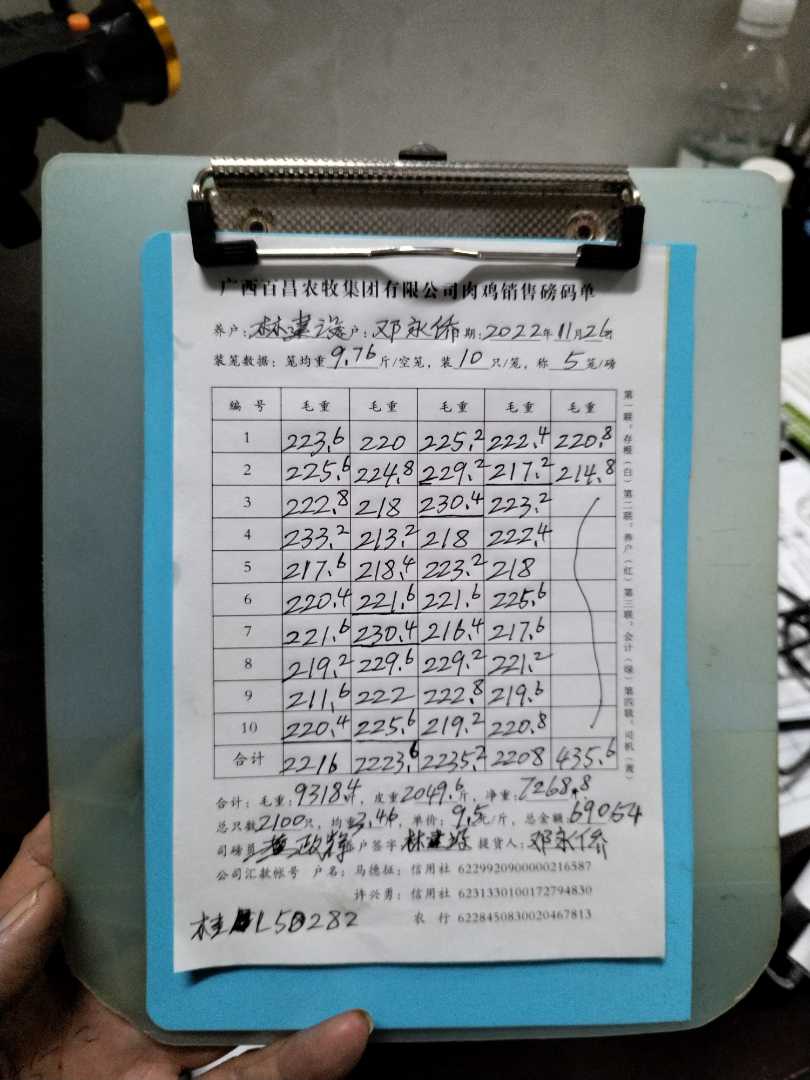 广西百昌农牧集团有限公司肉鸡销售磅码单
养户:林建设 户:邓永侨 期:2022年11月26
装笼数据:笼均重9.76斤/空笼,装10只/笼,称5笼/磅
编号 毛重 毛重 毛重 毛重 毛重
1 223.6 220 225.2 222.4 220.8
2 225.6 224.8 229.2 217.2 214.8
3 222.8 218 230.4 223.2
4 233.2 213.2 218 222.4
5 217.6 218.4 223.2 218
6 220.4 221.6 221.6 225.6
7 221.6 230.4 216.4 217.6
8 219.2 229.6 229.2 221.2
9 211.6 222 222.8 219.6
10 220.4 225.6 219.2 220.8
合计 2216 2223.6 2235.2 2208 435.6
合计:毛重:9318.4斤,皮重2049.6斤,净重:7268.8
总只数2100只,均重3.46斤,单价:9.5元/斤,总金额69054
司磅员 养户签字 林建设 提货人:邓永侨
公司汇款帐号 户名:马德征:信用社 6229920900000216587
许兴勇:信用社 6231330100172794830
农行 6228450830020467813
桂 L50282
第一联:存根(白)第二联:养户(红)第三联:会计(绿)第四联:司机(黄)